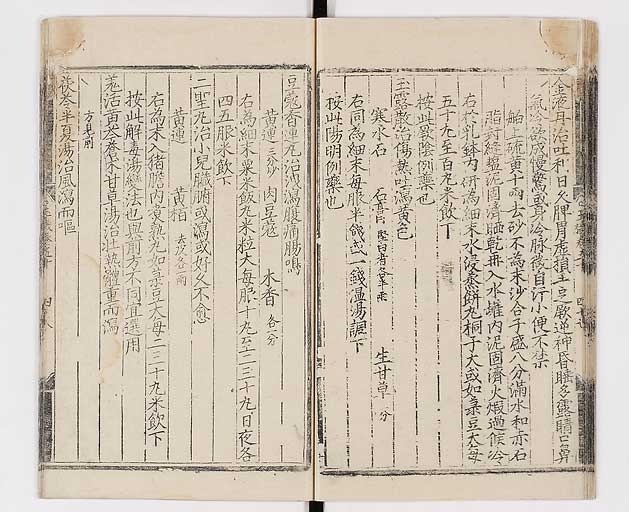 金液丹治吐利日久脾胃虛損手足厥逆神昏睡多露睛口鼻
氣冷欲成慢驚或身冷脉微自汗小便不禁
舶上硫黃十兩去砂不為末沙合子盛八分滿水和赤石
脂封縫鹽泥固濟曬乾再入水罐內泥固濟火煆過候冷
右於乳鉢內研為細末水浸蒸餅丸桐子大或如菉豆大每
五十丸至百丸米飲下
按此厥陰例藥也
玉露散治傷熱吐瀉黃色
寒水石 石膏 堅白者各半兩 生甘草 分
右同為細末每服半錢或一錢溫湯調下
按此陽明例藥也
豆蔻香連丸治洩瀉腹痛腸鳴
黃連 三分炒 肉豆蔻 木香 各一分
右為細末粟米飯丸米粒大每服十丸至二三十丸日夜各
四五服米飲下
二聖丸治小兒臟腑或瀉或好久不愈
黃連 黃柏 去皮各一兩
右為末入猪膽內湯熱丸如菉豆大每二三十丸米飲下
按此解毒湯變法也與前方不同宜選用
羌活黃芩蒼朮甘草湯治壯熱體重而瀉
方見前
茯苓半夏湯治風瀉而嘔